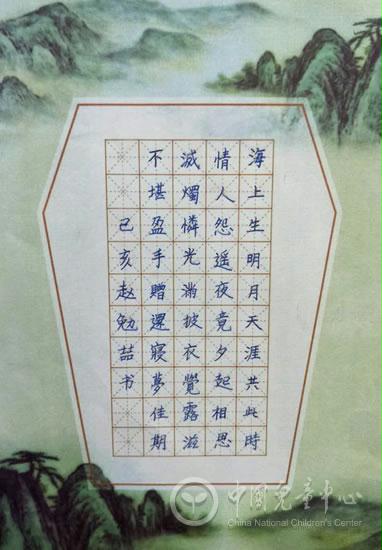 海上生明月天涯共此時
情人怨遥夜竟夕起相思
滅燭憐光滿披衣覺露滋
不堪盈手贈還寢夢佳期
己亥赵勉喆书
中國兒童中心
China National Children's Center